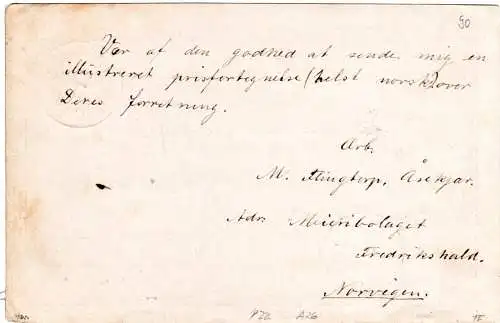 50
Vær af den godhed at sende mig en
illustreret prisfortegnelse (helst norsk) over
Deres forretning.
Arb.
M. Flingtorp, Åsekjær.
Adr. Meieribolaget
Fredrikshald.
Norvigen.
P22 A26